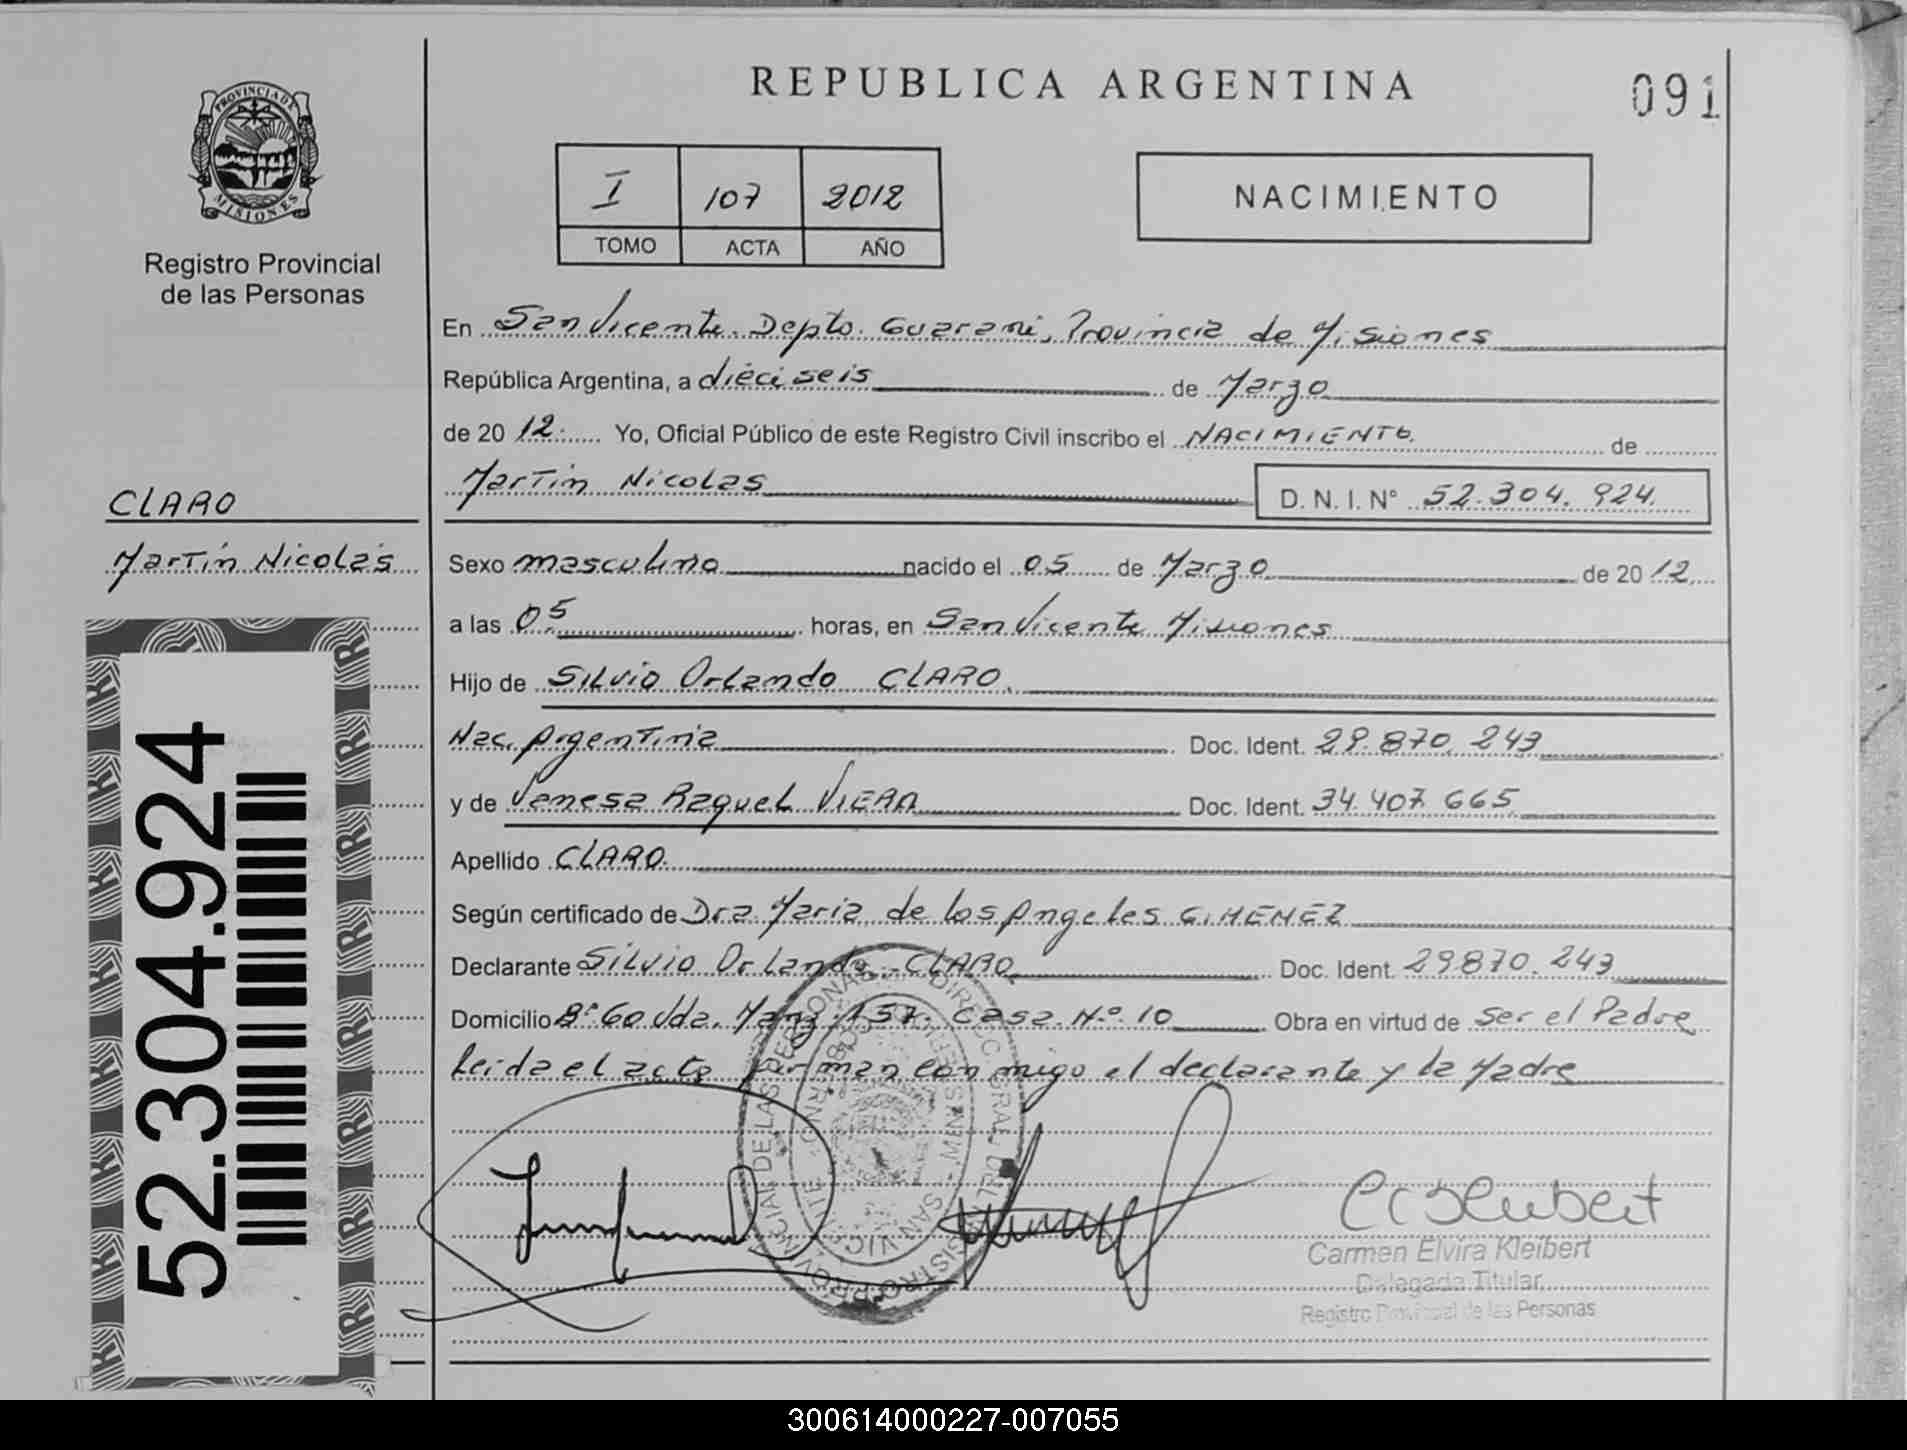 PROVINCIA DE
MISIONES
Registro Provincial
de las Personas
REPUBLICA ARGENTINA
091
I 107 2012
TOMO ACTA AÑO
NACIMIENTO
En San Vicente Depto. Guarani, Provincia de Misiones
República Argentina, a dieciseis de Marzo
de 2012 Yo, Oficial Público de este Registro Civil inscribo el NACIMIENTO de
Martin Nicolas D.N.I.N° 52.304.924
CLARO
Martín Nicolás
Sexo masculino nacido el 05 de Marzo de 2012
a las 05 horas, en San Vicente Misiones
Hijo de Silvio Orlando CLARO
Nac. Argentina Doc. Ident. 29.870.243
y de Vanesa Raquel VIERA Doc. Ident. 34.407.665
Apellido CLARO
Según certificado de Dra Maria de los Angeles GIMENEZ
Declarante Silvio Orlando CLARO Doc. Ident. 29870.243
Domicilio B° 60 Vda. Manz. 137. Casa N.° 10 Obra en virtud de ser el Padre
Leida el acta firman conmigo el declarante y la Madre
52.304.924
Carmen Elvira Kleibert
Delegada Titular
Registro Provincial de las Personas
300614000227-007055